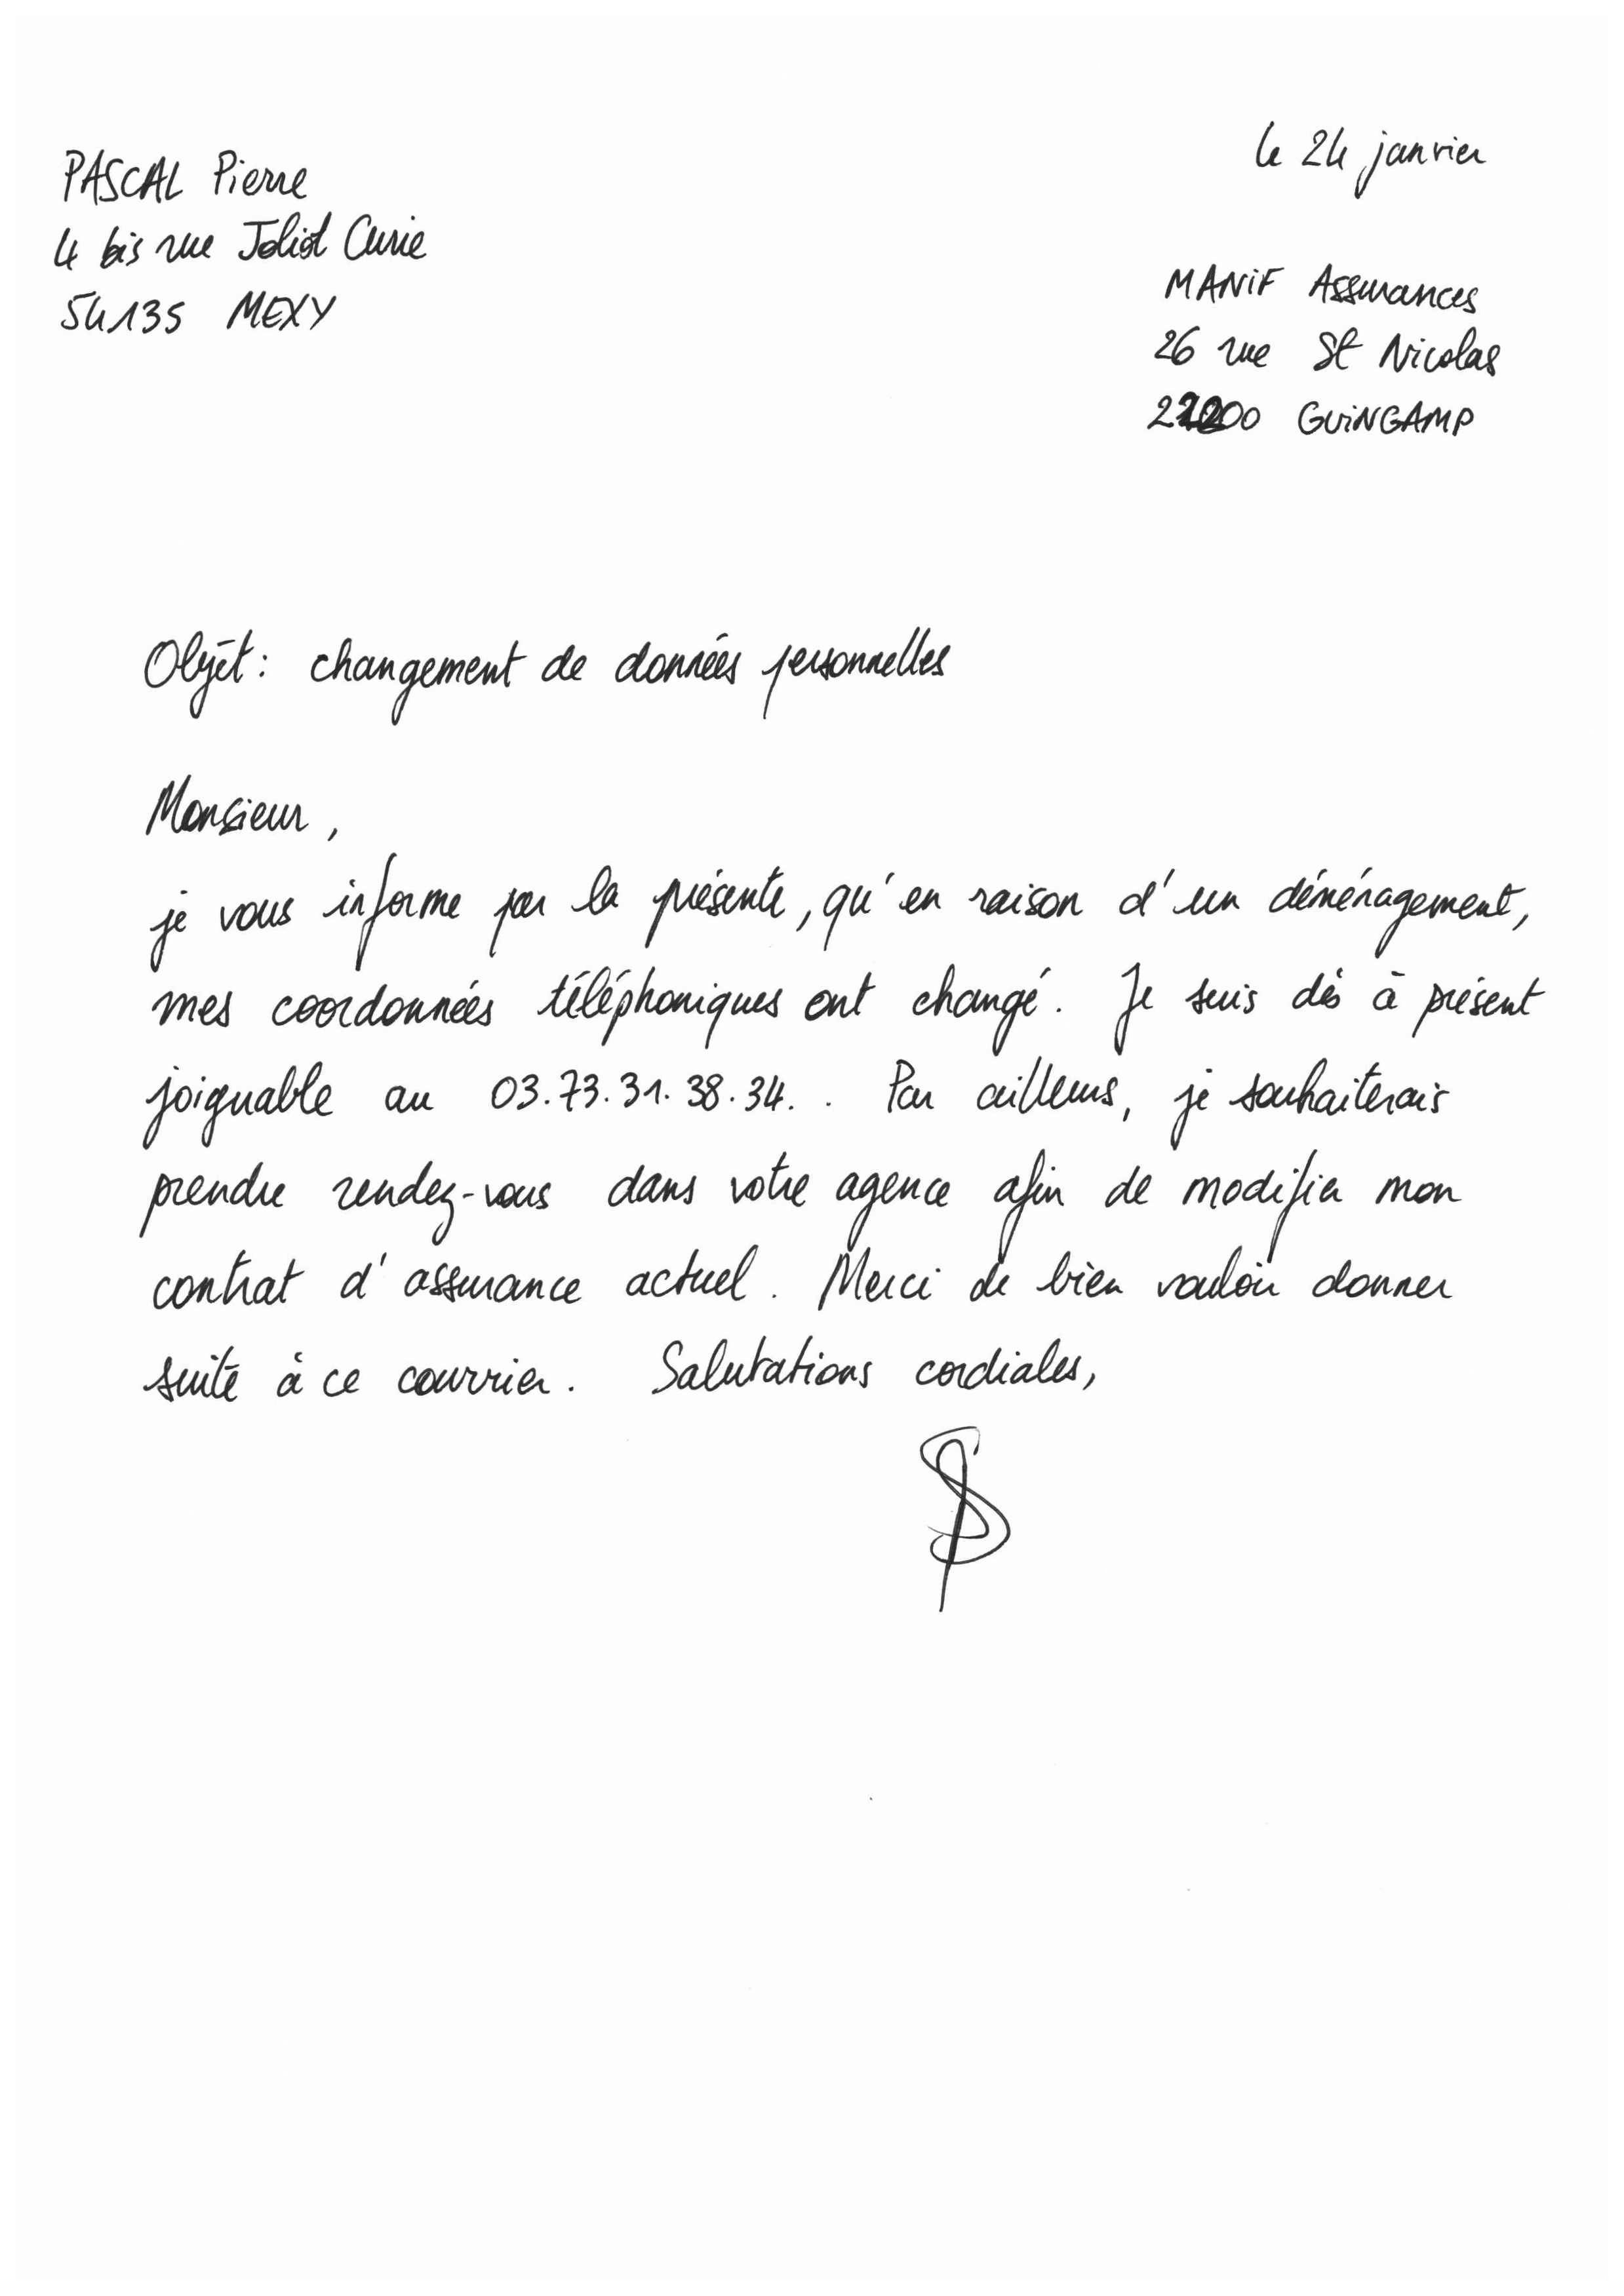 PASCAL Pierre
4 bis rue Joliot Curie
54135 MEXY
le 24 janvier
MANIF Assurances
26 rue St Nicolas
22200 GUINGAMP
Objet : changement de données personnelles
Monsieur,
je vous informe par la présente, qu'en raison d'un déménagement,
mes coordonnées téléphoniques ont changé. Je suis dès à présent
joignable au 03.73.31.38.34. . Par ailleurs, je souhaiterais
prendre rendez-vous dans votre agence afin de modifier mon
contrat d'assurance actuel. Merci de bien vouloir donner
suite à ce courrier. Salutations cordiales,